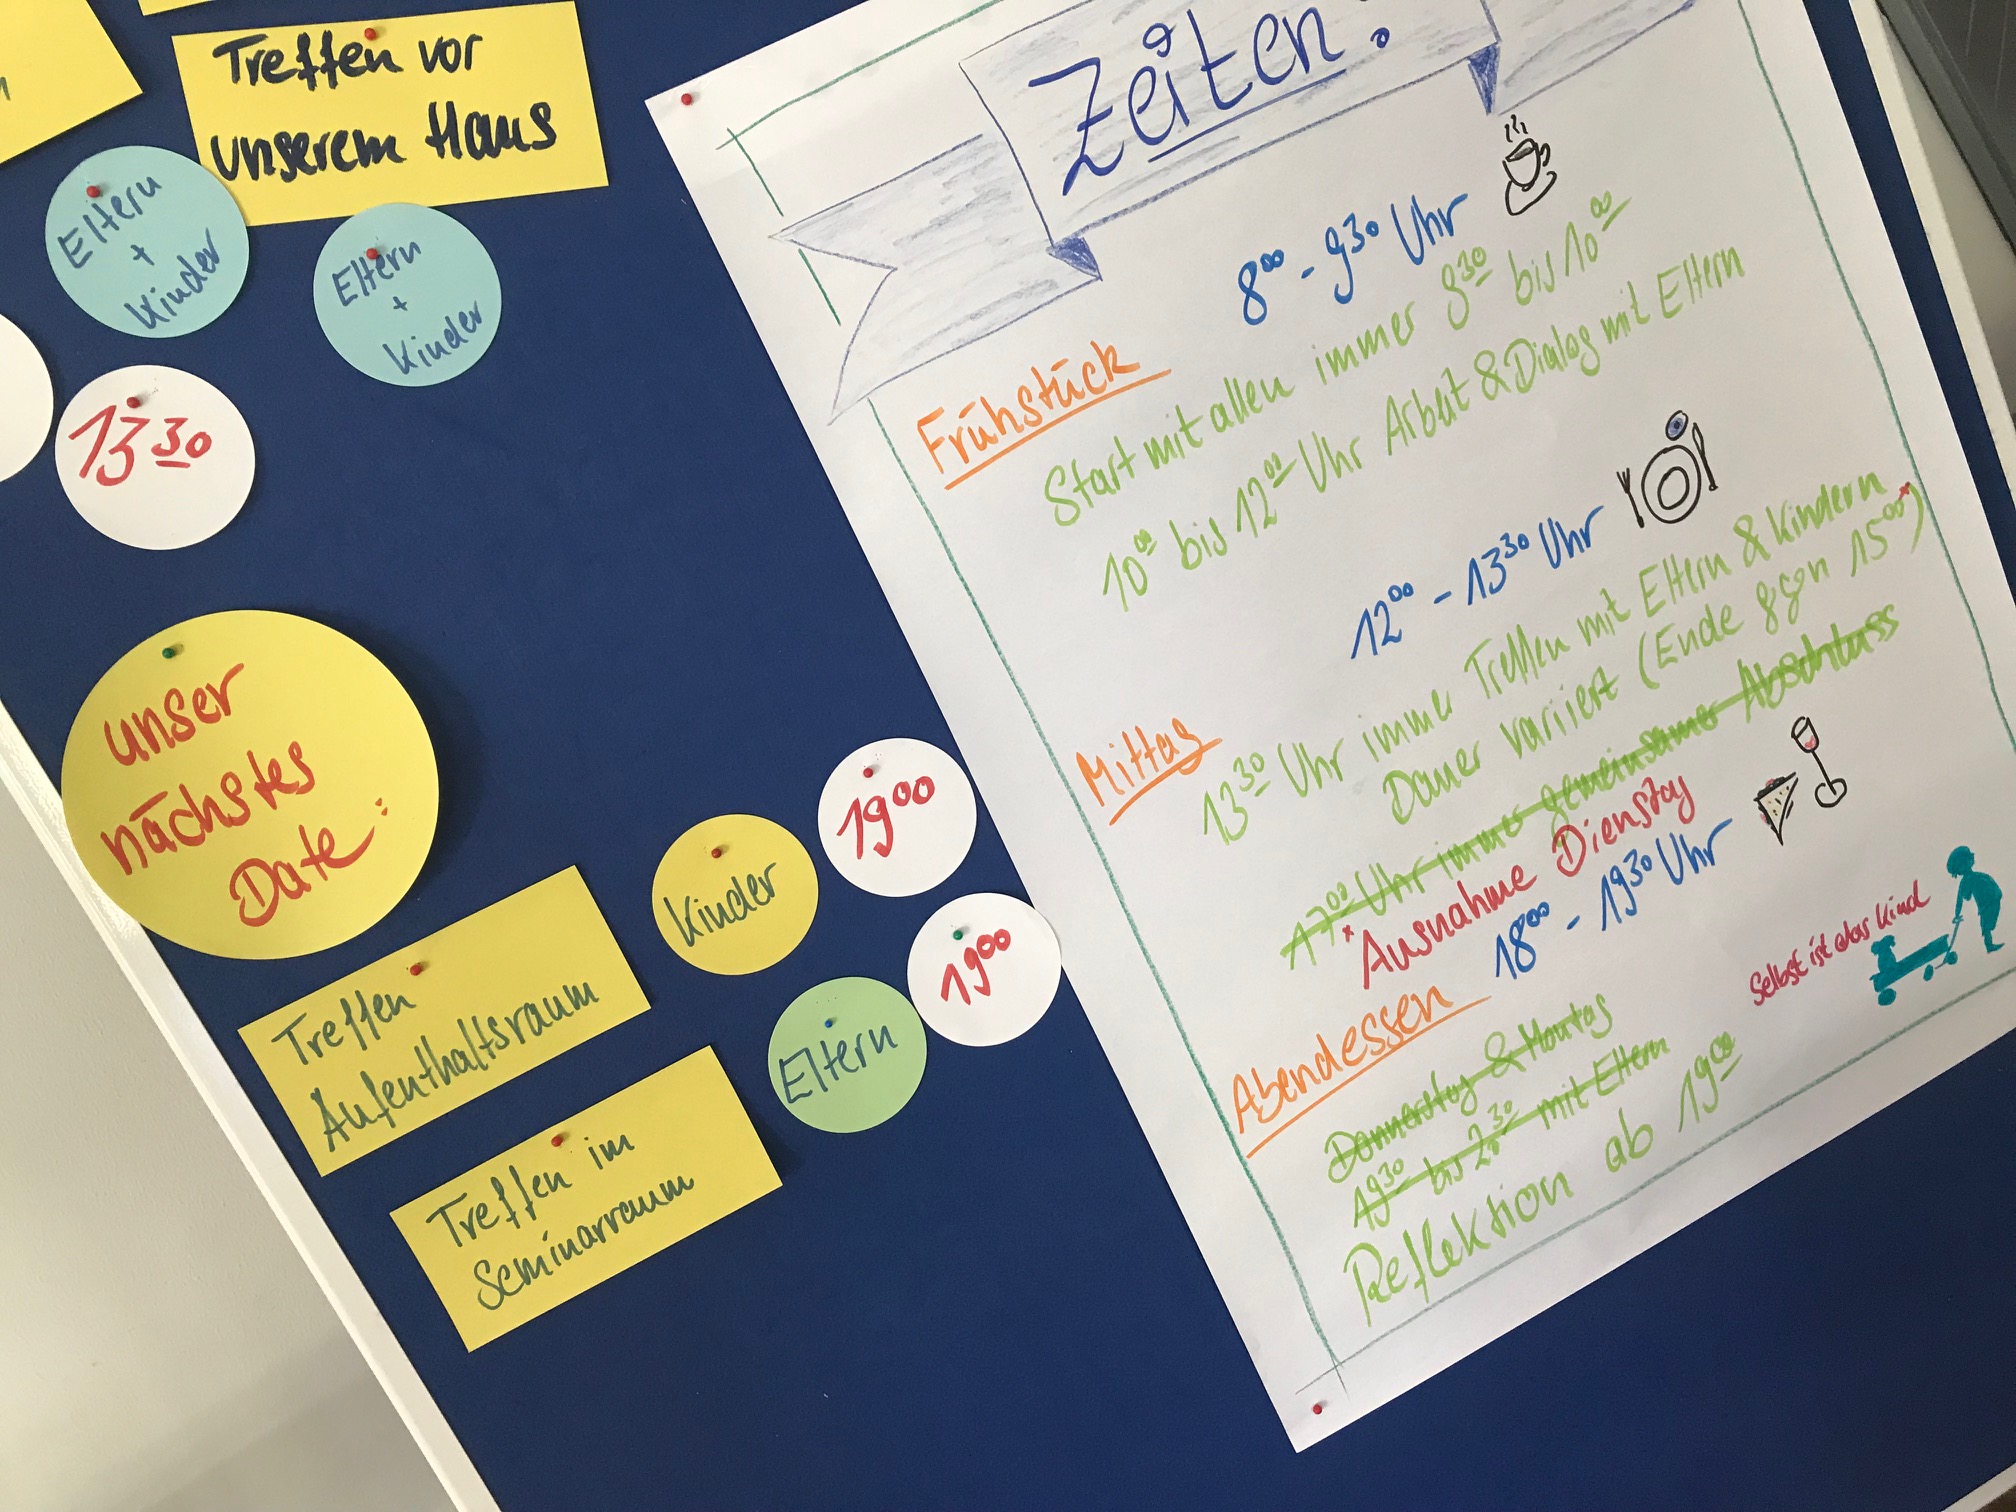 Treffen vor
unserem Haus
Eltern
+
Kinder
Eltern
+
Kinder
13 30
unser
nächstes
Date:
19 00
Kinder
19 00
Eltern
Treffen
Aufenthaltsraum
Treffen im
Seminarraum
Zeiten:
Frühstück 8 00 - 9 30 Uhr
Start mit allen immer 9 30 bis 10 00
10 00 bis 12 00 Uhr Arbeit & Dialog mit Eltern
Mittag 12 00 - 13 30 Uhr
13 30 Uhr immer Treffen mit Eltern & Kindern
Dauer variiert (Ende ggn 15 00*)
17 00 Uhr immer gemeinsamer Abschluss
* Ausnahme Dienstag
Abendessen 18 00 - 19 30 Uhr
Selbst ist das Kind
Donnerstag & Montag
19 30 bis 20 30 mit Eltern
Reflektion ab 19 00